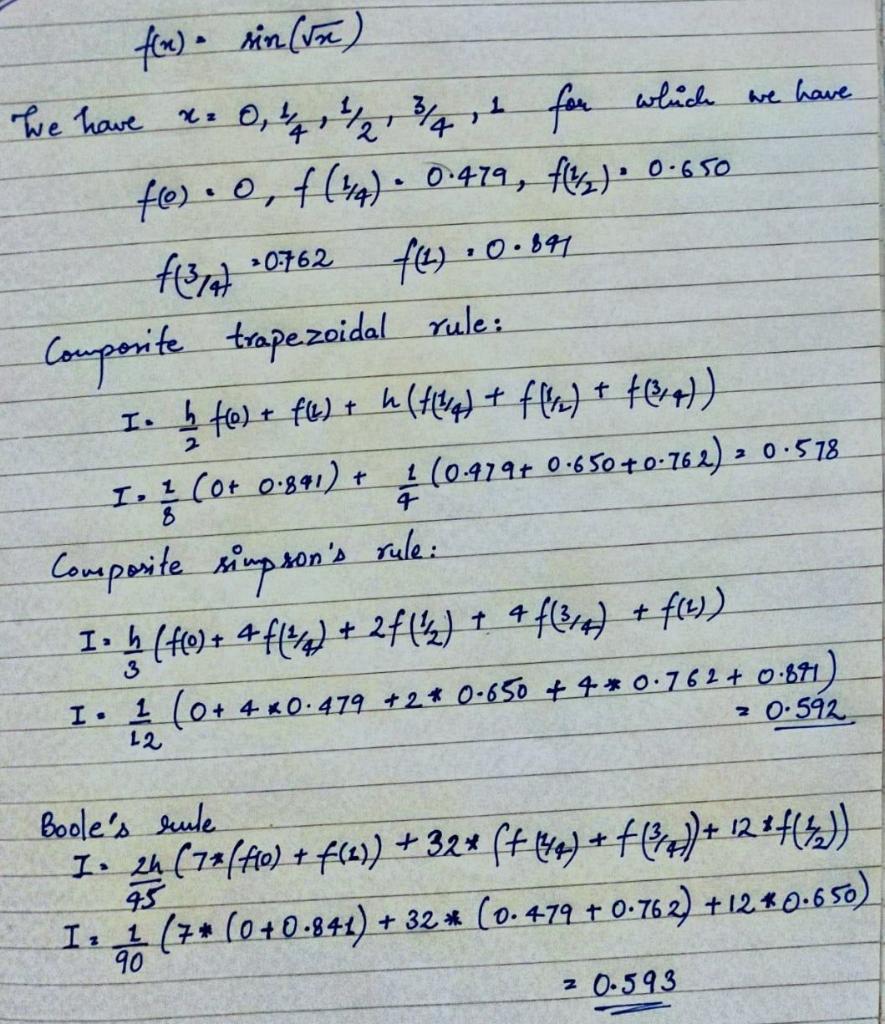 f(x) = sin(√x)
We have x = 0, 1/4, 1/2, 3/4, 1 for which we have
f(0) = 0, f(1/4) = 0.479, f(1/2) = 0.650
f(3/4) = 0.762 f(1) = 0.841
Composite trapezoidal rule:
I = h/2 f(0) + f(1) + h(f(1/4) + f(1/2) + f(3/4))
I = 1/8 (0 + 0.841) + 1/4 (0.479 + 0.650 + 0.762) = 0.578
Composite simpson's rule:
I = h/3 (f(0) + 4f(1/4) + 2f(1/2) + 4f(3/4) + f(1))
I = 1/12 (0 + 4*0.479 + 2*0.650 + 4*0.762 + 0.841)
= 0.592
Boole's rule
I = 2h/45 (7*(f(0) + f(1)) + 32*(f(1/4) + f(3/4)) + 12*f(1/2))
I = 1/90 (7*(0+0.841) + 32*(0.479 + 0.762) + 12*0.650)
= 0.593